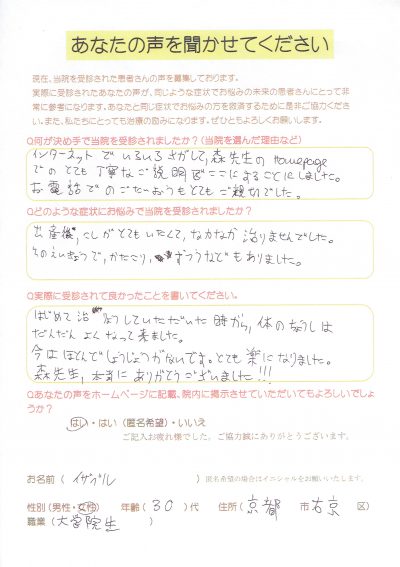 あなたの声を聞かせてください
現在、当院を受診された患者さんの声を募集しております。
実際に受診されたあなたの声が、同じような症状でお悩みの未来の患者さんにとって非
常に参考になります。あなたと同じ症状でお悩みの方を救済するために是非ご協力くださ
い。また、私たちにとっても治療の励みになります。ぜひともよろしくお願いします。
Q何が決め手で当院を受診されましたか？(当院を選んだ理由など)
インターネットでいろいろさがして、森先生のHomepage
でのとても丁寧なご説明でここにすることにしました。
お電話でのごたいおうもとてもご親切でした。
Qどのような症状にお悩みで当院を受診されましたか？
出産後、こしがとてもいたくて、なかなか治りませんでした。
そのえいきょうで、かたこり、ずつうなどもありました。
Q実際に受診されて良かったことを書いてください。
はじめて治りょうしていただいた時から、体のちょうしは
だんだんよくなって来ました。
今はほとんどしょうじょうがないです。とても楽になりました。
森先生、本当にありがとうございました!!!
Qあなたの声をホームページに記載、院内に掲示させていただいてもよろしいでしょ
うか？
はい・はい（匿名希望）・いいえ
ご記入お疲れ様でした。ご協力誠にありがとうございます。
お名前（イザベル）匿名希望の場合はイニシャルをお願いいたします。
性別(男性・女性)　年齢(30)代　住所(京都　市右京　区)
職業（大学院生）